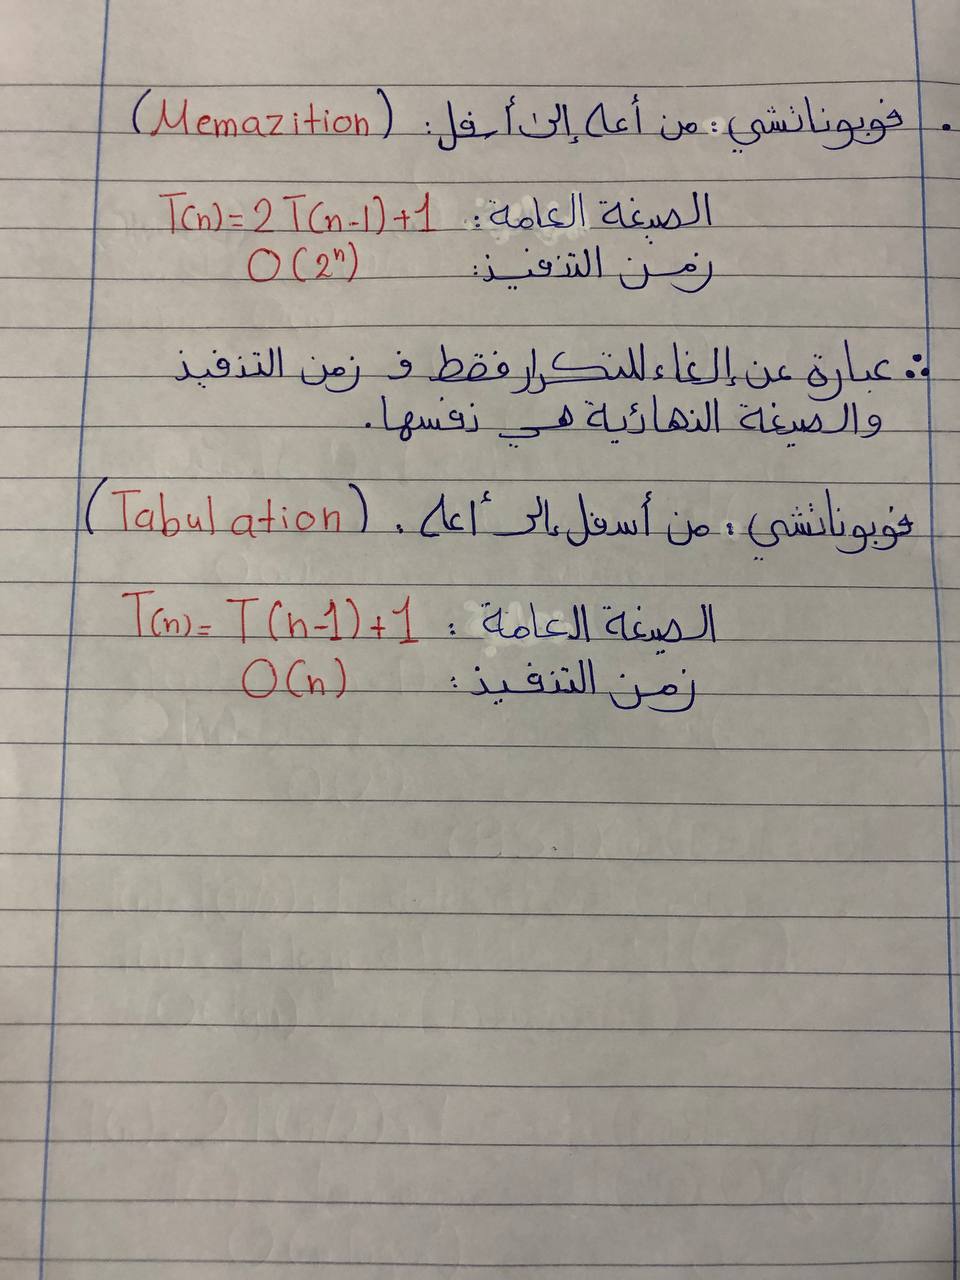 . فوبوناتشي: من أعلى إلى أسفل: (Memazition)
الصيغة العامة: T(n)=2T(n-1)+1
زمن التنفيذ: O(2ⁿ)
∴ عبارة عن إلغاء للتكرار فقط ف زمن التنفيذ
والصيغة النهائية هي نفسها.
فوبوناتشي: من أسفل إلى أعلى. (Tabulation)
الصيغة العامة: T(n)= T(n-1)+1
زمن التنفيذ: O(n)